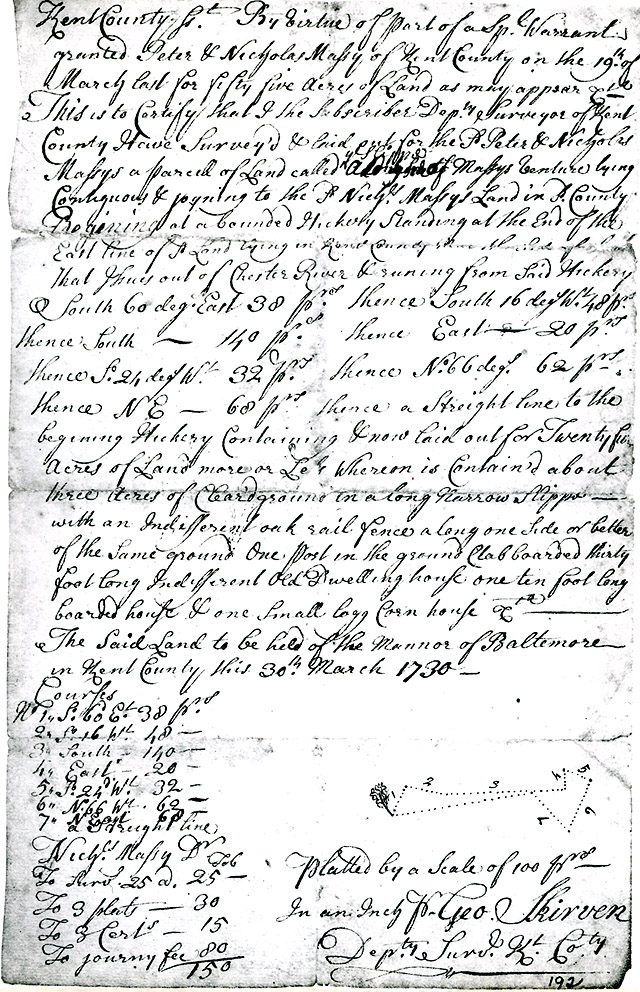 Kent County Sst. By Virtue of Part of a Sp. Warrant
granted Peter & Nicholas Massy of Kent County on the 19th of
March last for fifty five Acres of Land as may appear
This is to Certify that I the Subscriber Depty Surveyor of Kent
County Have Survey'd & laid out for the Sd Peter & Nicholas
Massys a Parcell of Land called Massys Venture lying
Contiguous & joyning to the Sd Nichs Massys Land in Sd County
Begining at a bounded Hickery Standing at the End of the
East line of Sd Land lying in Kent County
that Isues out of Chester River & runing from Said Hickery
South 60 deg. East 38 prs thence South 16 degs Wt 48 prs
thence South — 140 prs thence East — 20 prs
thence So. 24 deg Wt 32 prs thence No. 66 degs. 62 prs.
thence N E — 68 prs thence a Streight line to the
begining Hickery Containing & now laid out for Twenty five
Acres of Land more or Less Whereon is Contain'd about
three Acres of Cleard ground in a long Narrow Slippe —
with an Indifferent oak rail fence along one Side or better
of the Same ground One Post in the ground Clabboarded thirty
foot long Indifferent Old Dwelling house one ten foot long
boarded house & one Small logg Corn house &ca
The Said Land to be held of the Mannor of Baltemore
in Kent County this 30th March 1730 —
Courses
No 1 So. 60 Et 38 prs
2 So. 16 Wt 48 —
3 South — 140 —
4 East 20 —
5 So. 24d Wt. 32 —
6 No. 66 Wt. 62 —
7 a Streight line
Nichs. Massy Dr
Tob
To Survs. 25 a. 25 —
To 3 plats — 30
To 3 Certs — 15
To journy fee 80
150
1 2 3 4 5 6 7
Platted by a Scale of 100 prs
In an Inch Pr Geo. Skirven
Depty Survr. Kt. Coty
192